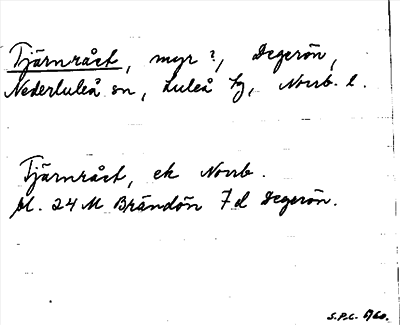 Tjärnrået, myr?, Degerön,
Nederluleå sn, Luleå tg, Norrb. l.
Tjärnrået, ek Norrb.
bl. 24 M Brändön 7 d Degerön.
S.P.C. 1/60.